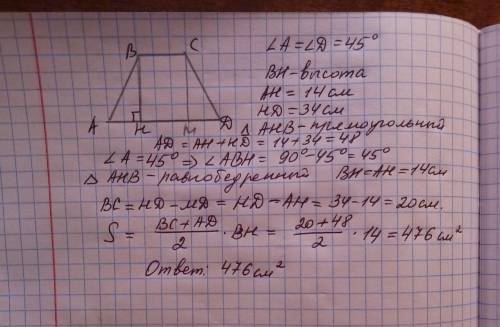 B C
A H M D
∠A = ∠D = 45°
BH - высота
AH = 14 см
HD = 34 см
△ AHB - прямоугольный
AD = AH + HD = 14 + 34 = 48
∠A = 45° => ∠ABH = 90° - 45° = 45°
△ AHB - равнобедренный BH = AH = 14 см
BC = HD - MD = HD - AH = 34 - 14 = 20 см.
S = (BC + AD)/2 · BH = (20 + 48)/2 · 14 = 476 см²
Ответ: 476 см²